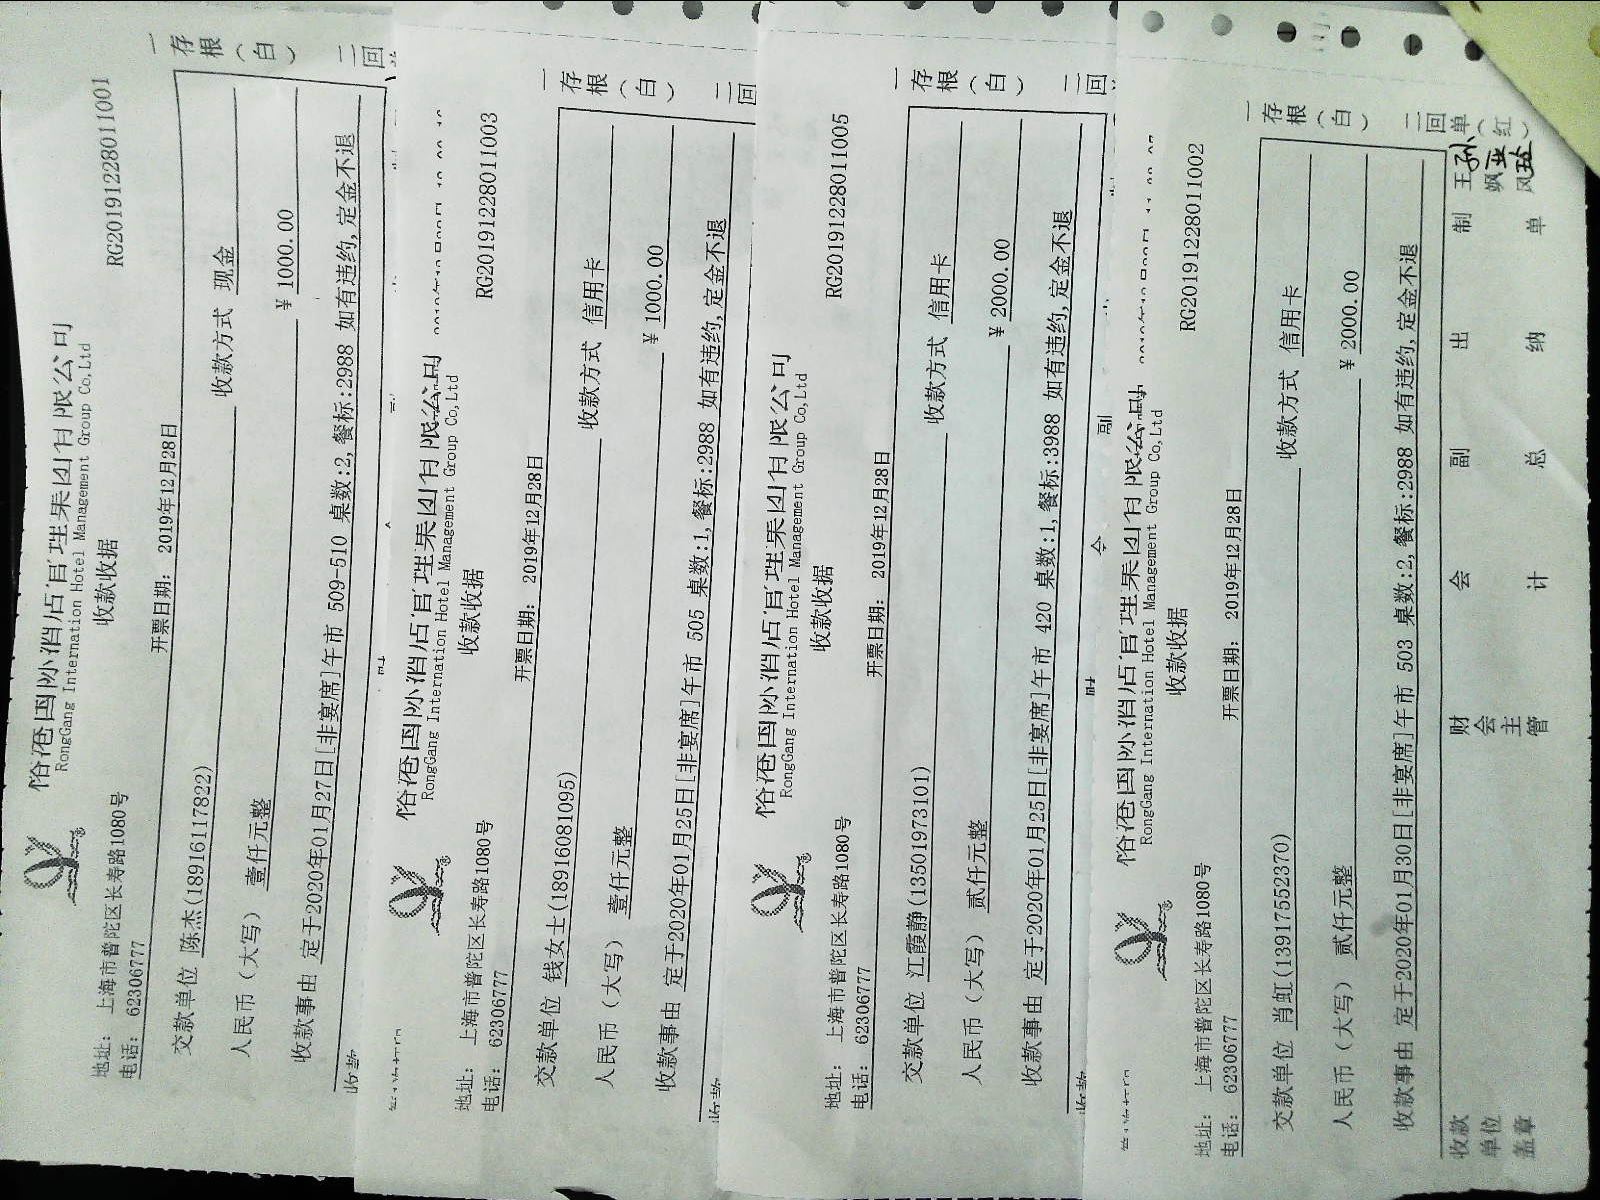 俗港国际酒店管理集团有限公司
RongGang International Hotel Management Group Co,Ltd
收款收据
地址： 上海市普陀区长寿路1080号
电话： 62306777
RG20191228011001
开票日期： 2019年12月28日
一存根（白）
二回
交款单位 陈杰(18916117822) 收款方式 现金
人民币（大写） 壹仟元整 ¥ 1000.00
收款事由 定于2020年01月27日[非宴席]午市 509-510 桌数:2,餐标:2988 如有违约,定金不退
收款
国际酒店管理集团有限公司
RongGang International Hotel Management Group Co,Ltd
收款收据
地址： 上海市普陀区长寿路1080号
电话： 62306777
RG20191228011003
开票日期： 2019年12月28日
一存根（白）
二回
交款单位 钱女士(18916081095) 收款方式 信用卡
人民币（大写） 壹仟元整 ¥ 1000.00
收款事由 定于2020年01月25日[非宴席]午市 505 桌数:1,餐标:2988 如有违约,定金不退
收款
国际酒店管理集团有限公司
RongGang International Hotel Management Group Co,Ltd
收款收据
地址： 上海市普陀区长寿路1080号
电话： 62306777
RG20191228011005
开票日期： 2019年12月28日
一存根（白）
二回
交款单位 江霞静(13501973101) 收款方式 信用卡
人民币（大写） 贰仟元整 ¥ 2000.00
收款事由 定于2020年01月25日[非宴席]午市 420 桌数:1,餐标:3988 如有违约,定金不退
收款
国际酒店管理集团有限公司
RongGang International Hotel Management Group Co,Ltd
收款收据
地址： 上海市普陀区长寿路1080号
电话： 62306777
RG20191228011002
开票日期： 2019年12月28日
一存根（白）
二回单（红）
交款单位 肖虹(13917552370) 收款方式 信用卡
人民币（大写） 贰仟元整 ¥ 2000.00
收款事由 定于2020年01月30日[非宴席]午市 503 桌数:2,餐标:2988 如有违约,定金不退
收款单位盖章 财会主管 会计 副总 出纳 制单 王飒风